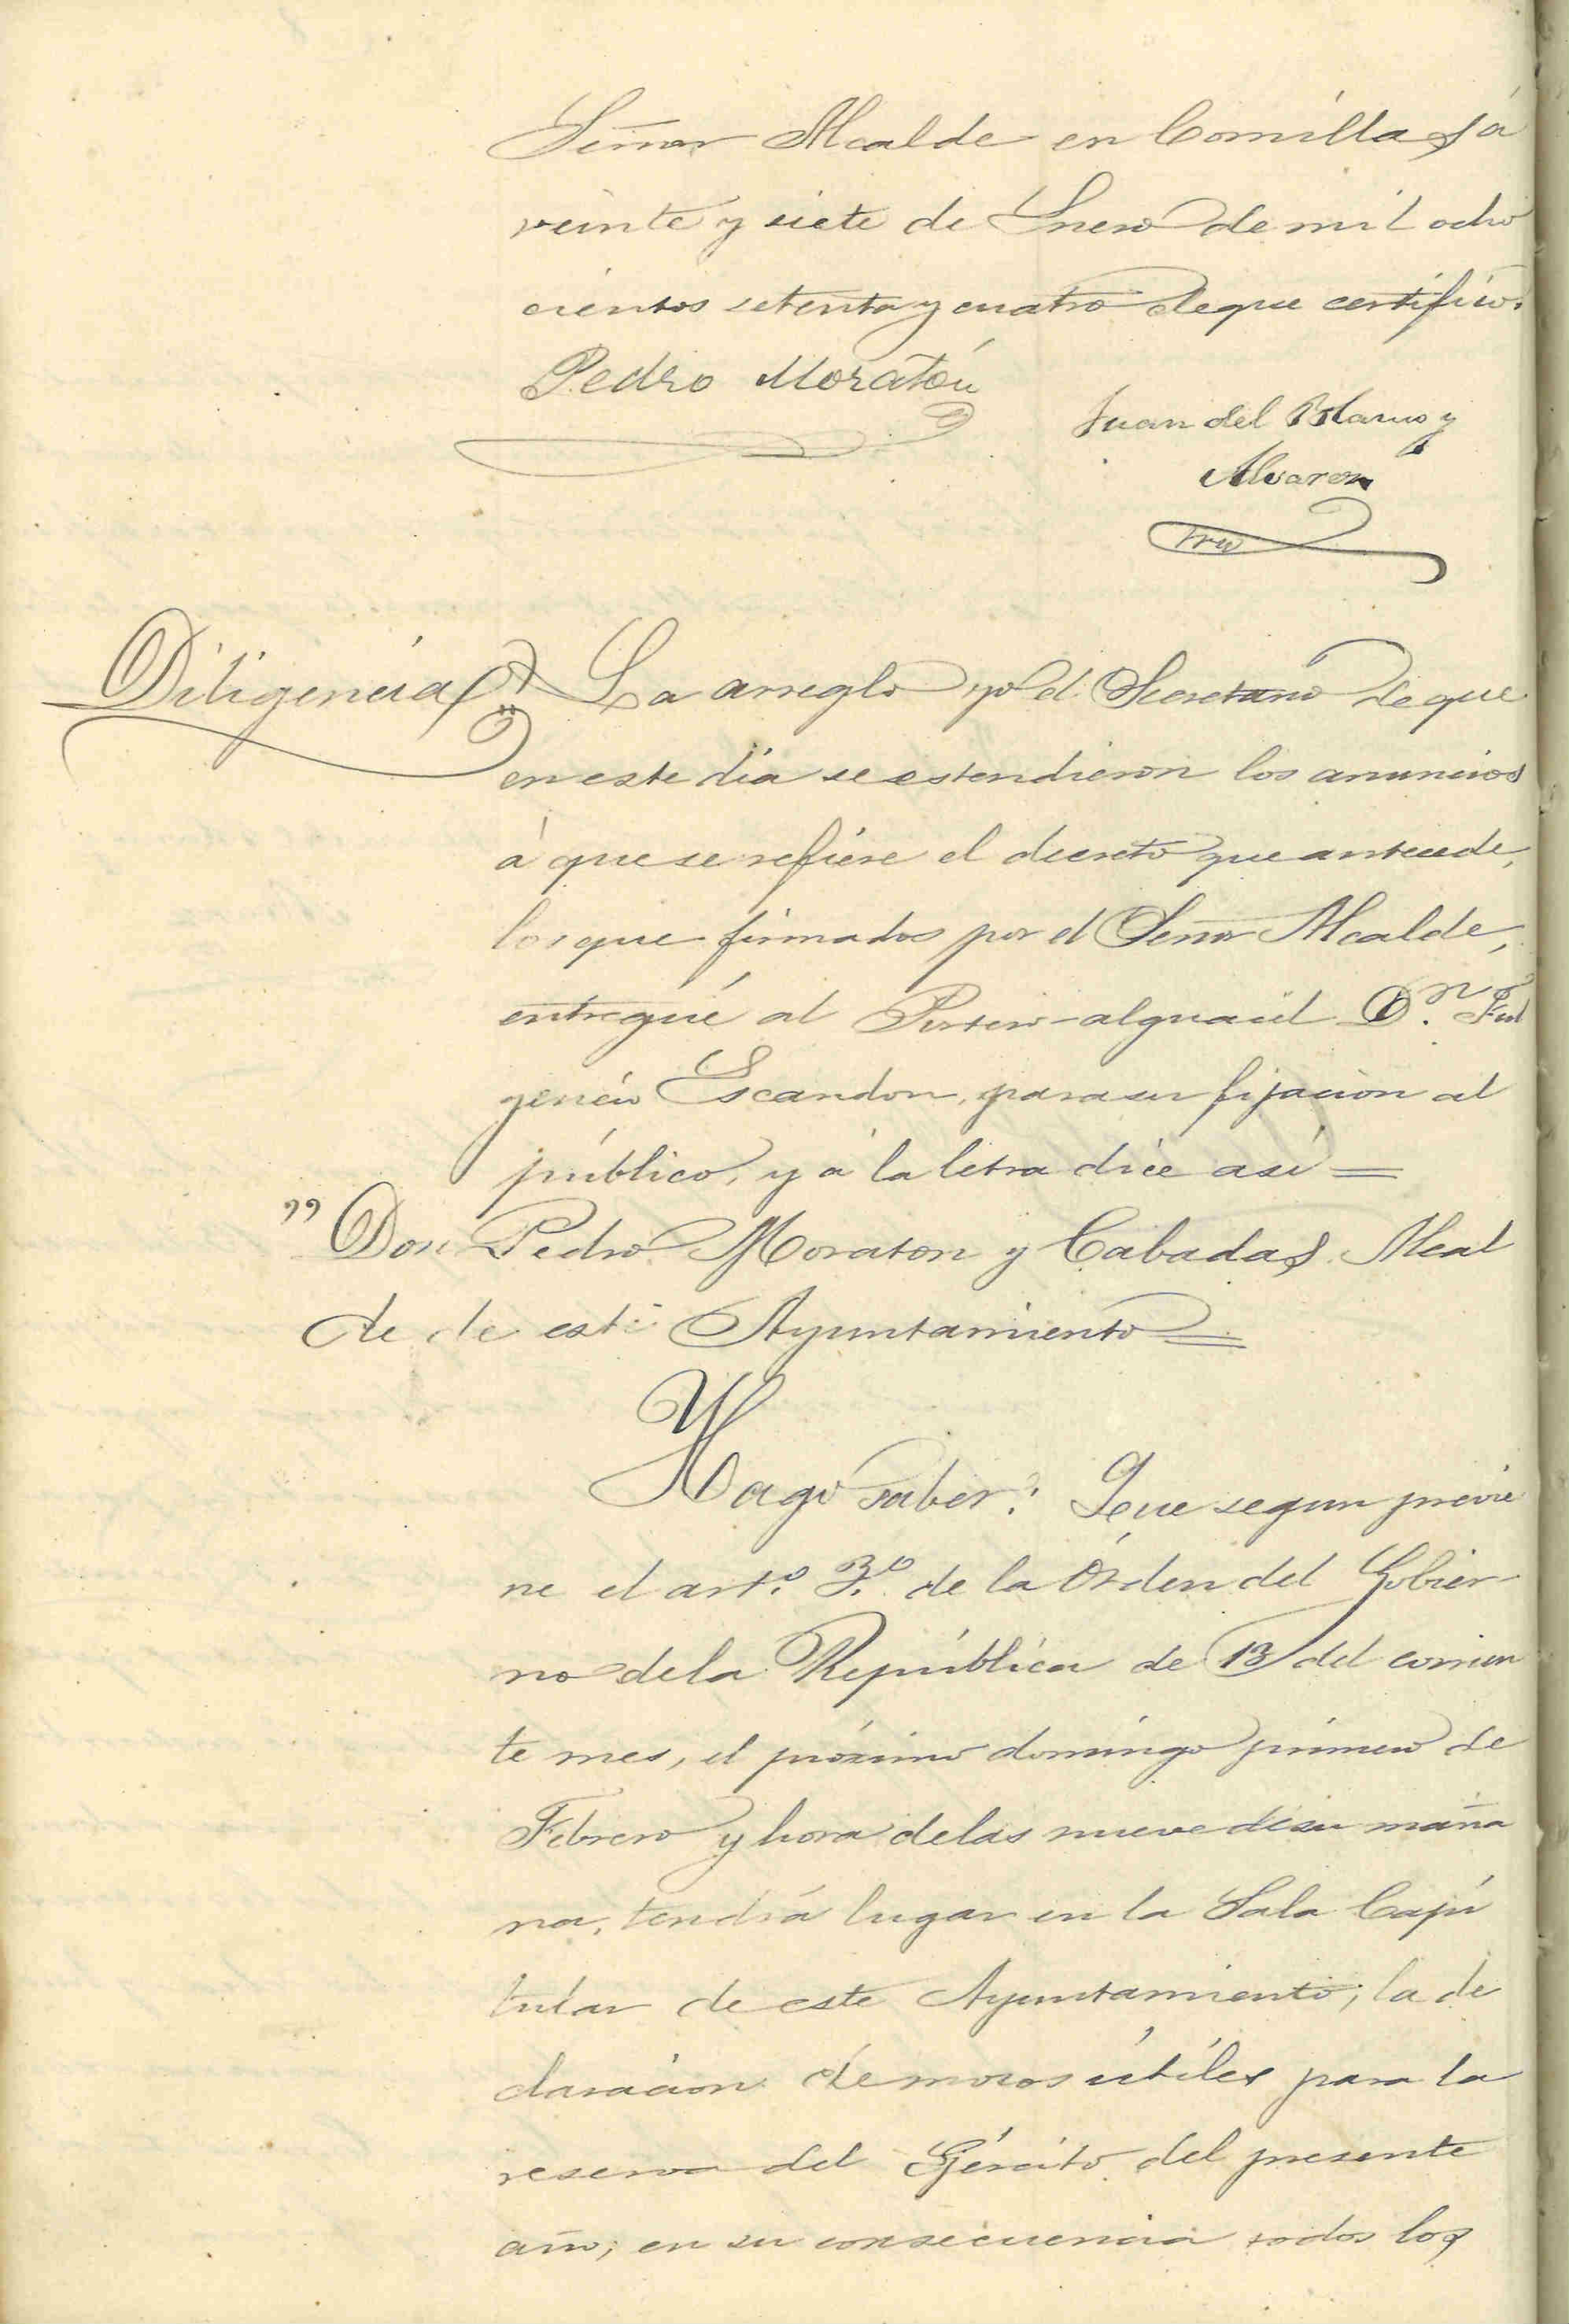 Señor Alcalde en Comillas á
veinte y siete de Enero de mil ocho
cientos setenta y cuatro de que certifico.
Pedro Moratón
Juan del
y
Alvarez
Srio
Diligencia La arreglo yo el Secretario de que
en este dia se estendieron los anuncios
á que se refiere el decreto que antecede,
los que firmados por el Señor Alcalde,
entregué al Portero-alguacil Dn. Ful
gencio Escandon, para su fijacion al
público, y á la letra dice así =
" Don Pedro Moraton y Cabadas Alcal
de de este Ayuntamiento =
Hago saber: Que segun previe
ne el arto. 3o. de la Órden del Gobier-
no de la República de 13 del corrien
te mes, el próximo domingo primero de
Febrero y hora de las nueve de su maña
na, tendrá lugar en la Sala Capi
tular de este Ayuntamiento; la de
claracion de mozos útiles para la
reserva del Ejército del presente
año; en su consecuencia todos los